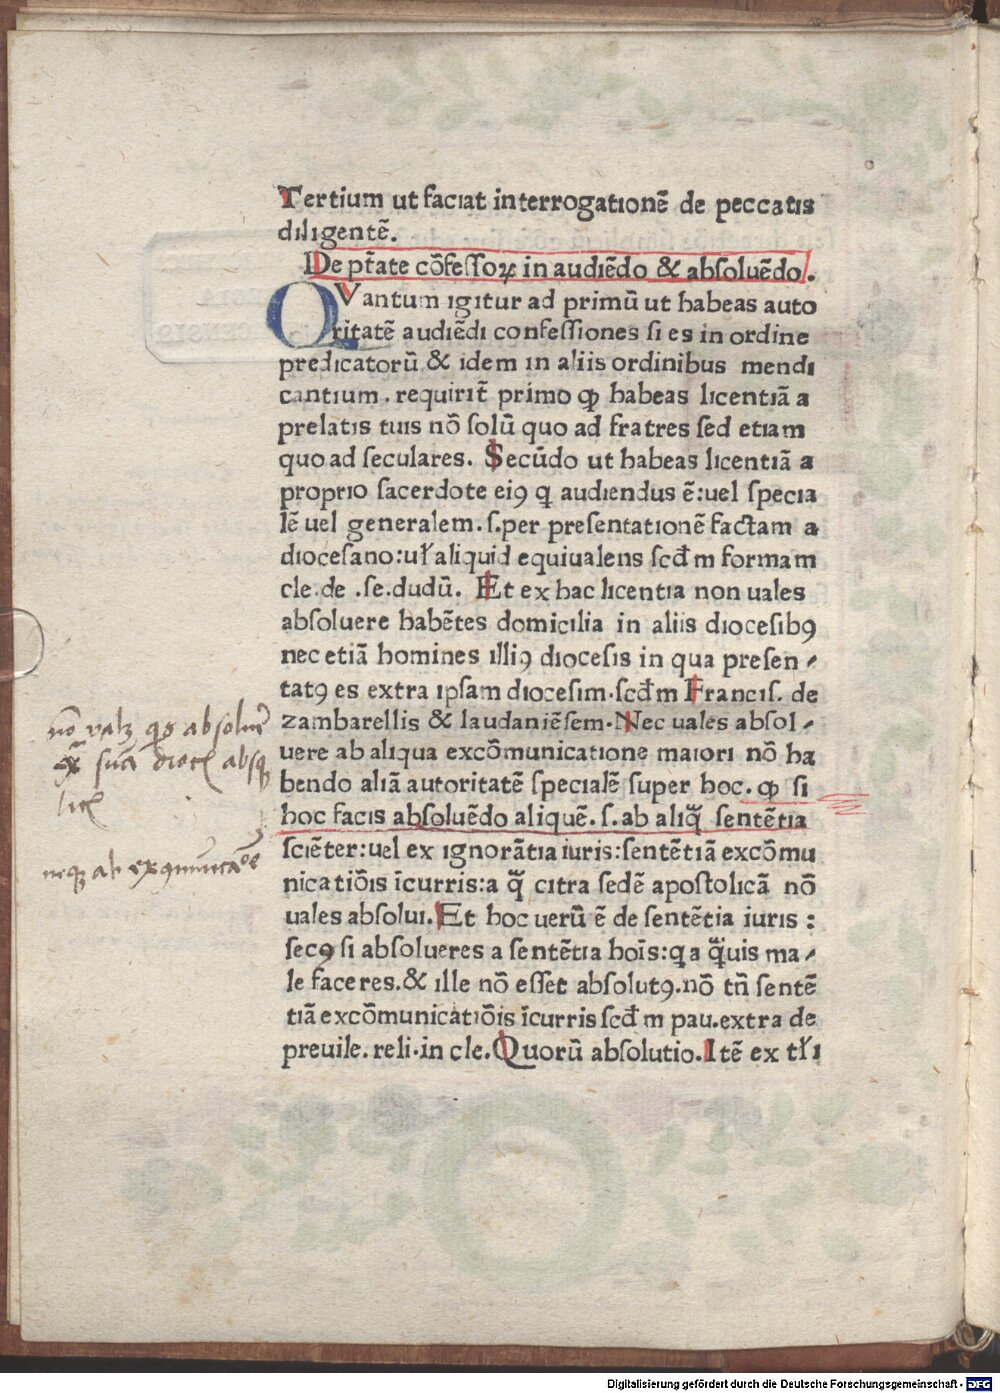 Tertium ut faciat interrogationē de peccatis
diligentē.
De ptāte cōfessoꝝ in audiēdo & absoluēdo.
QVantum igitur ad primū ut habeas auto
ritatē audiēdi confeſſiones ſi es in ordine
predicatorū & idem in aliis ordinibus mendi
cantium. requirit̄ primo ꝙ habeas licentiā a
prelatis tuis nō ſolū quo ad fratres ſed etiam
quo ad ſeculares. Secūdo ut habeas licentiā a
proprio ſacerdote eiꝰ q audiendus ē:uel ſpecia
lē uel generalem.ſ.per preſentationē factam a
dioceſano:uł aliquid equiualens ſcd̄m formam
cle.de .ſe.dudū. Et ex hac licentia non uales
abſoluere habētes domicilia in aliis dioceſibꝰ
nec etiā homines illiꝰ dioceſis in qua preſen-
tatꝰ es extra ipſam dioceſim.ſcd̄m Franciſ. de
zambarellis & laudaniēſem.Nec uales abſol-
uere ab aliqua excōmunicatione maiori nō ha
bendo aliā autoritatē ſpecialē ſuper hoc. ꝙ ſi
hoc facis abſoluēdo aliquē.ſ.ab aliq̄ ſentētia
ſciēter:uel ex ignorātia iuris:ſentētiā excōmu
nicatiōis īcurris:a q̄ citra ſedē apoſtolicā nō
uales abſolui.Et hoc uerū ē de ſentētia iuris:
ſecꝰ ſi abſolueres a ſentētia hoīs:q a q̄uis ma-
le faceres.& ille nō eſſet abſolutꝰ.nō tn̄ ſentē
tiā excōmunicatiōis īcurris ſcd̄m pau.extra de
preuile.reli.in cle.Quorū abſolutio.Itē ex tłi
nō valꝫ
absq
neqꝫ ab
Digitalisierung gefördert durch die Deutsche Forschungsgemeinschaft - DFG